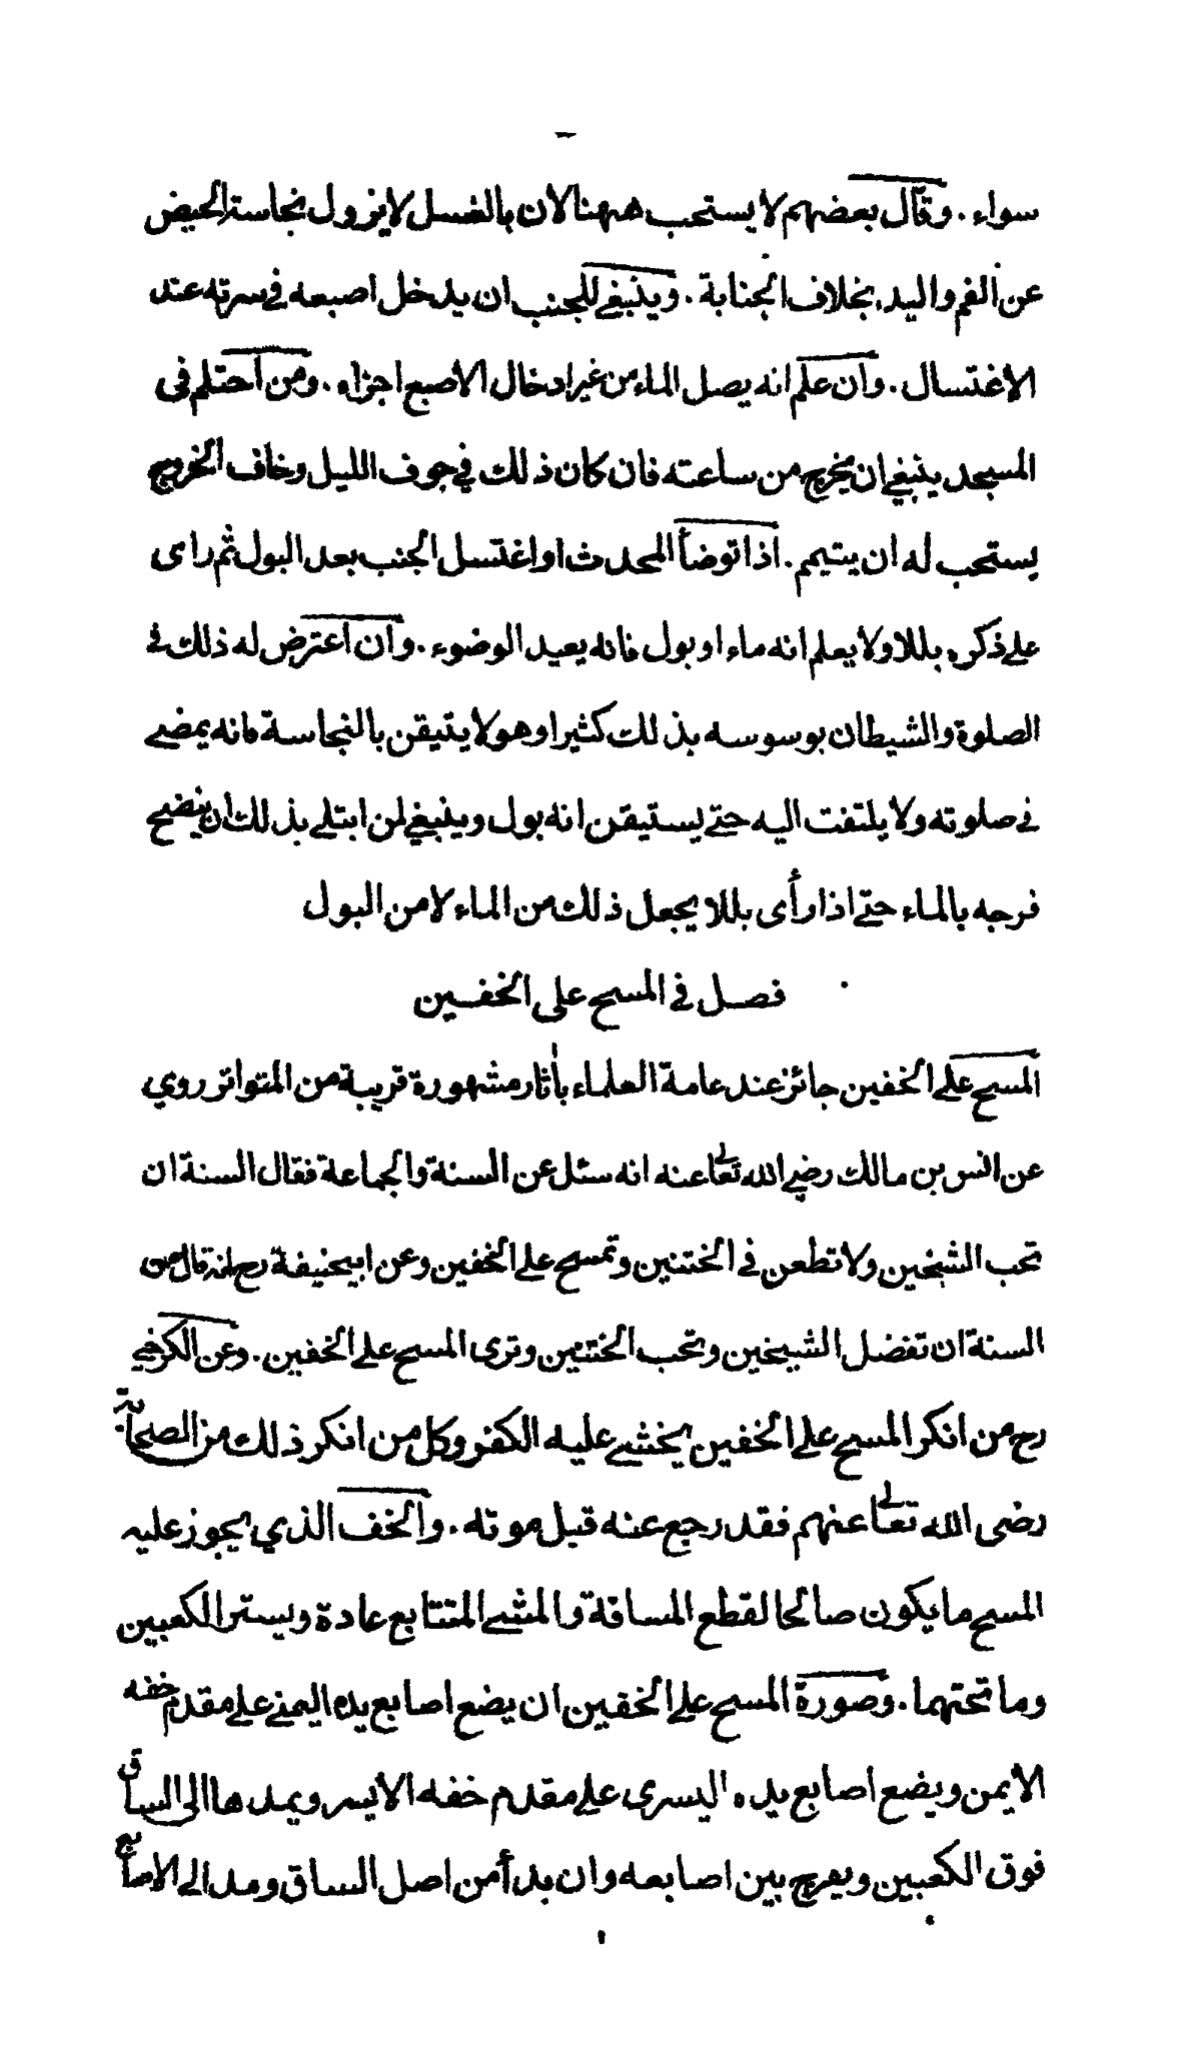 سواء. وقال بعضهم لا يستحب ههنا لان بالغسل لا يزول نجاسة الحيض
عن الفم واليد بخلاف الجنابة. وينبغي للجنب ان يدخل اصبعه في سرته عند
الاغتسال. وان علم انه يصل الماء من غير ادخال الاصبع اجزاه. ومن احتلم في
المسجد ينبغي ان يخرج من ساعته فان كان ذلك في جوف الليل وخاف الخروج
يستحب له ان يتيمم. اذا توضأ المحدث او اغتسل الجنب بعد البول ثم راى
على ذكره بللا ولا يعلم انه ماء او بول فانه يعيد الوضوء. وان اعترض له ذلك في
الصلوة والشيطان يوسوسه بذلك كثيرا وهو لا يتيقن بالنجاسة فانه يمضي
في صلوته ولا يلتفت اليه حتى يستيقن انه بول وينبغي لمن ابتلي بذلك ان ينضح
فرجه بالماء حتى اذا رأى بللا يجعل ذلك من الماء لا من البول
فصل في المسح على الخفين
المسح على الخفين جائز عند عامة العلماء بأثار مشهورة قريبة من المتواتر روي
عن انس بن مالك رضي الله تعالى عنه انه سئل عن السنة والجماعة فقال السنة ان
تحب الشيخين ولا تطعن في الختنين وتمسح على الخفين وعن ابيحنيفة رح انه قال من
السنة ان تفضل الشيخين وتحب الختنين وترى المسح على الخفين. وعن الكرخي
رح من انكر المسح على الخفين يخشى عليه الكفر وكل من انكر ذلك من الصحابة
رضى الله تعالى عنهم فقد رجع عنه قبل موته. والخف الذي يجوز عليه
المسح ما يكون صالحا لقطع المسافة والمشي المتتابع عادة ويستر الكعبين
وما تحتهما. وصورة المسح على الخفين ان يضع اصابع يده اليمنى على مقدم خفه
الايمن ويضع اصابع يده اليسرى على مقدم خفه الايسر ويمدها الى الساق
فوق الكعبين ويفرج بين اصابعه وان بدأ من اصل الساق ومد الى الاصابع